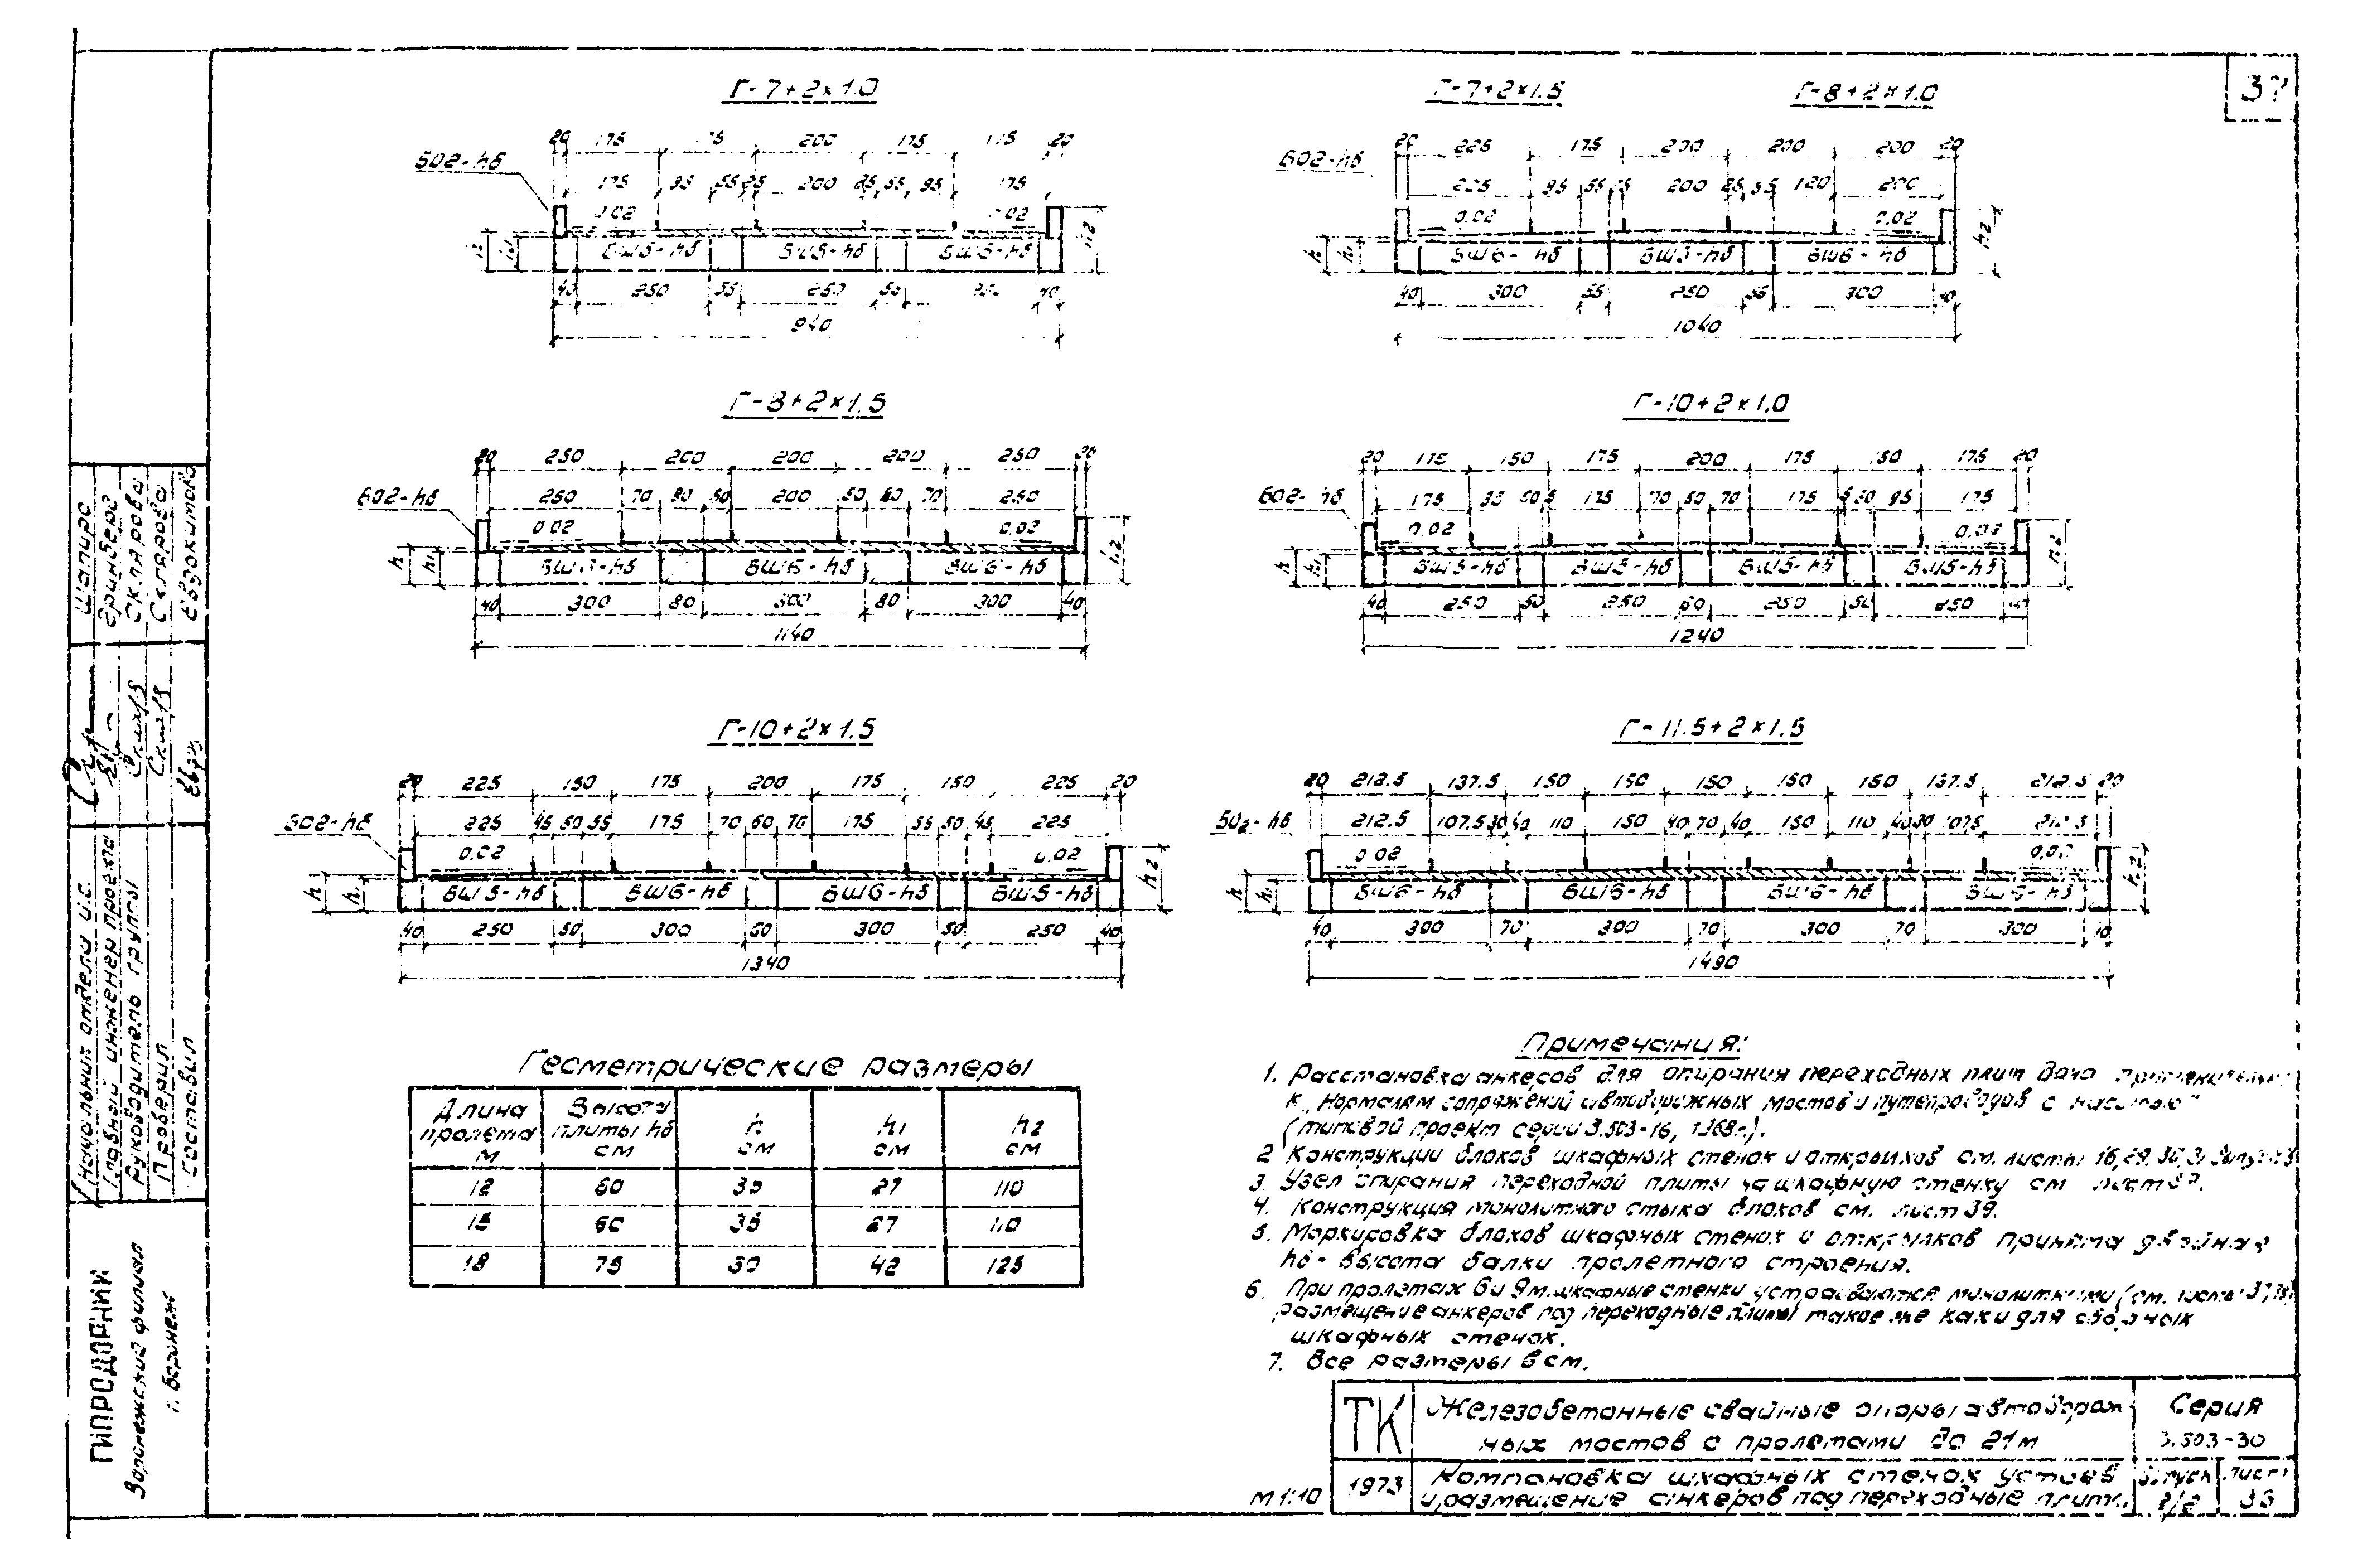 37
Г-7+2×1.0
20 175 175 200 175 175 20
БО2-hб
175 95 55 25 200 25 55 95 175
0.02 0.02
h h1 БШ5-hб БШ5-hб БШ5-hб h2
40 250 55 250 55 250 40
940
Г-7+2×1.5 Г-8+2×1.0
20 225 175 200 200 200 20
БО2-hб
225 95 55 25 200 25 55 120 200
0.02 0.02
h h1 БШ6-hб БШ5-hб БШ6-hб h2
40 300 55 250 55 300 40
1040
Г-8+2×1.5
20 250 200 200 200 250 20
БО2-hб
250 70 80 50 200 50 80 70 250
0.02 0.02
h h1 БШ6-hб БШ6-hб БШ6-hб h2
40 300 80 300 80 300 40
1140
Г-10+2×1.0
20 175 150 175 200 175 150 175 20
БО2-hб
175 95 50 5 175 70 60 70 175 5 50 95 175
0.02 0.02
h h1 БШ5-hб БШ5-hб БШ5-hб БШ5-hб h2
40 250 50 250 60 250 50 250 40
1240
Г-10+2×1.5
20 225 150 175 200 175 150 225 20
БО2-hб
225 45 50 55 175 70 60 70 175 55 50 45 225
0.02 0.02
h h1 БШ5-hб БШ6-hб БШ6-hб БШ5-hб h2
40 250 50 300 60 300 50 250 40
1340
Г-11.5+2×1.5
20 212.5 137.5 150 150 150 150 150 137.5 212.5 20
БО2-hб
212.5 107.5 30 40 110 150 40 70 40 150 110 40 30 107.5 212.5
0.02 0.02
h h1 БШ6-hб БШ6-hб БШ6-hб БШ6-hб h2
40 300 70 300 70 300 70 300 40
1490
Геометрические размеры
Длина пролета м | Высота плиты hб см | h см | h1 см | h2 см
12 60 35 27 110
15 60 35 27 110
18 75 50 42 125
Примечания:
1. Расстановка анкеров для опирания переходных плит дана применительно
к „Нормалям сопряжений автодорожных мостов и путепроводов с насыпью"
(типовой проект серии 3.503-16, 1968г.).
2 Конструкции блоков шкафных стенок и открылков см. листы 16, 29, 30,
3. Узел опирания переходной плиты на шкафную стенку см лист
4. Конструкция монолитного стыка блоков см. лист 39.
5. Маркировка блоков шкафных стенок и открылков принята двойная
hб - высота балки пролетного строения.
6. При пролетах 6 и 9 м. шкафные стенки устраиваются монолитными (см. листы 37,
размещение анкеров под переходные плиты такое же как и для сборных
шкафных стенок.
7. Все размеры в см.
М 1:10
ТК
Железобетонные свайные опоры автодорож-
ных мостов с пролетами до 21м
Серия
3.503-30
1973
Компановка шкафных стенок устоев
и размещение анкеров под переходные плиты
Выпуск 2/2
Лист 36
Начальник отдела и.с. Шапиро
Главный инженер проекта Гринберг
Руководитель группы Склярова
Проверил Склярова
Составил Евдокимова
ГИПРОДОРНИИ
Воронежский филиал
г. Воронеж